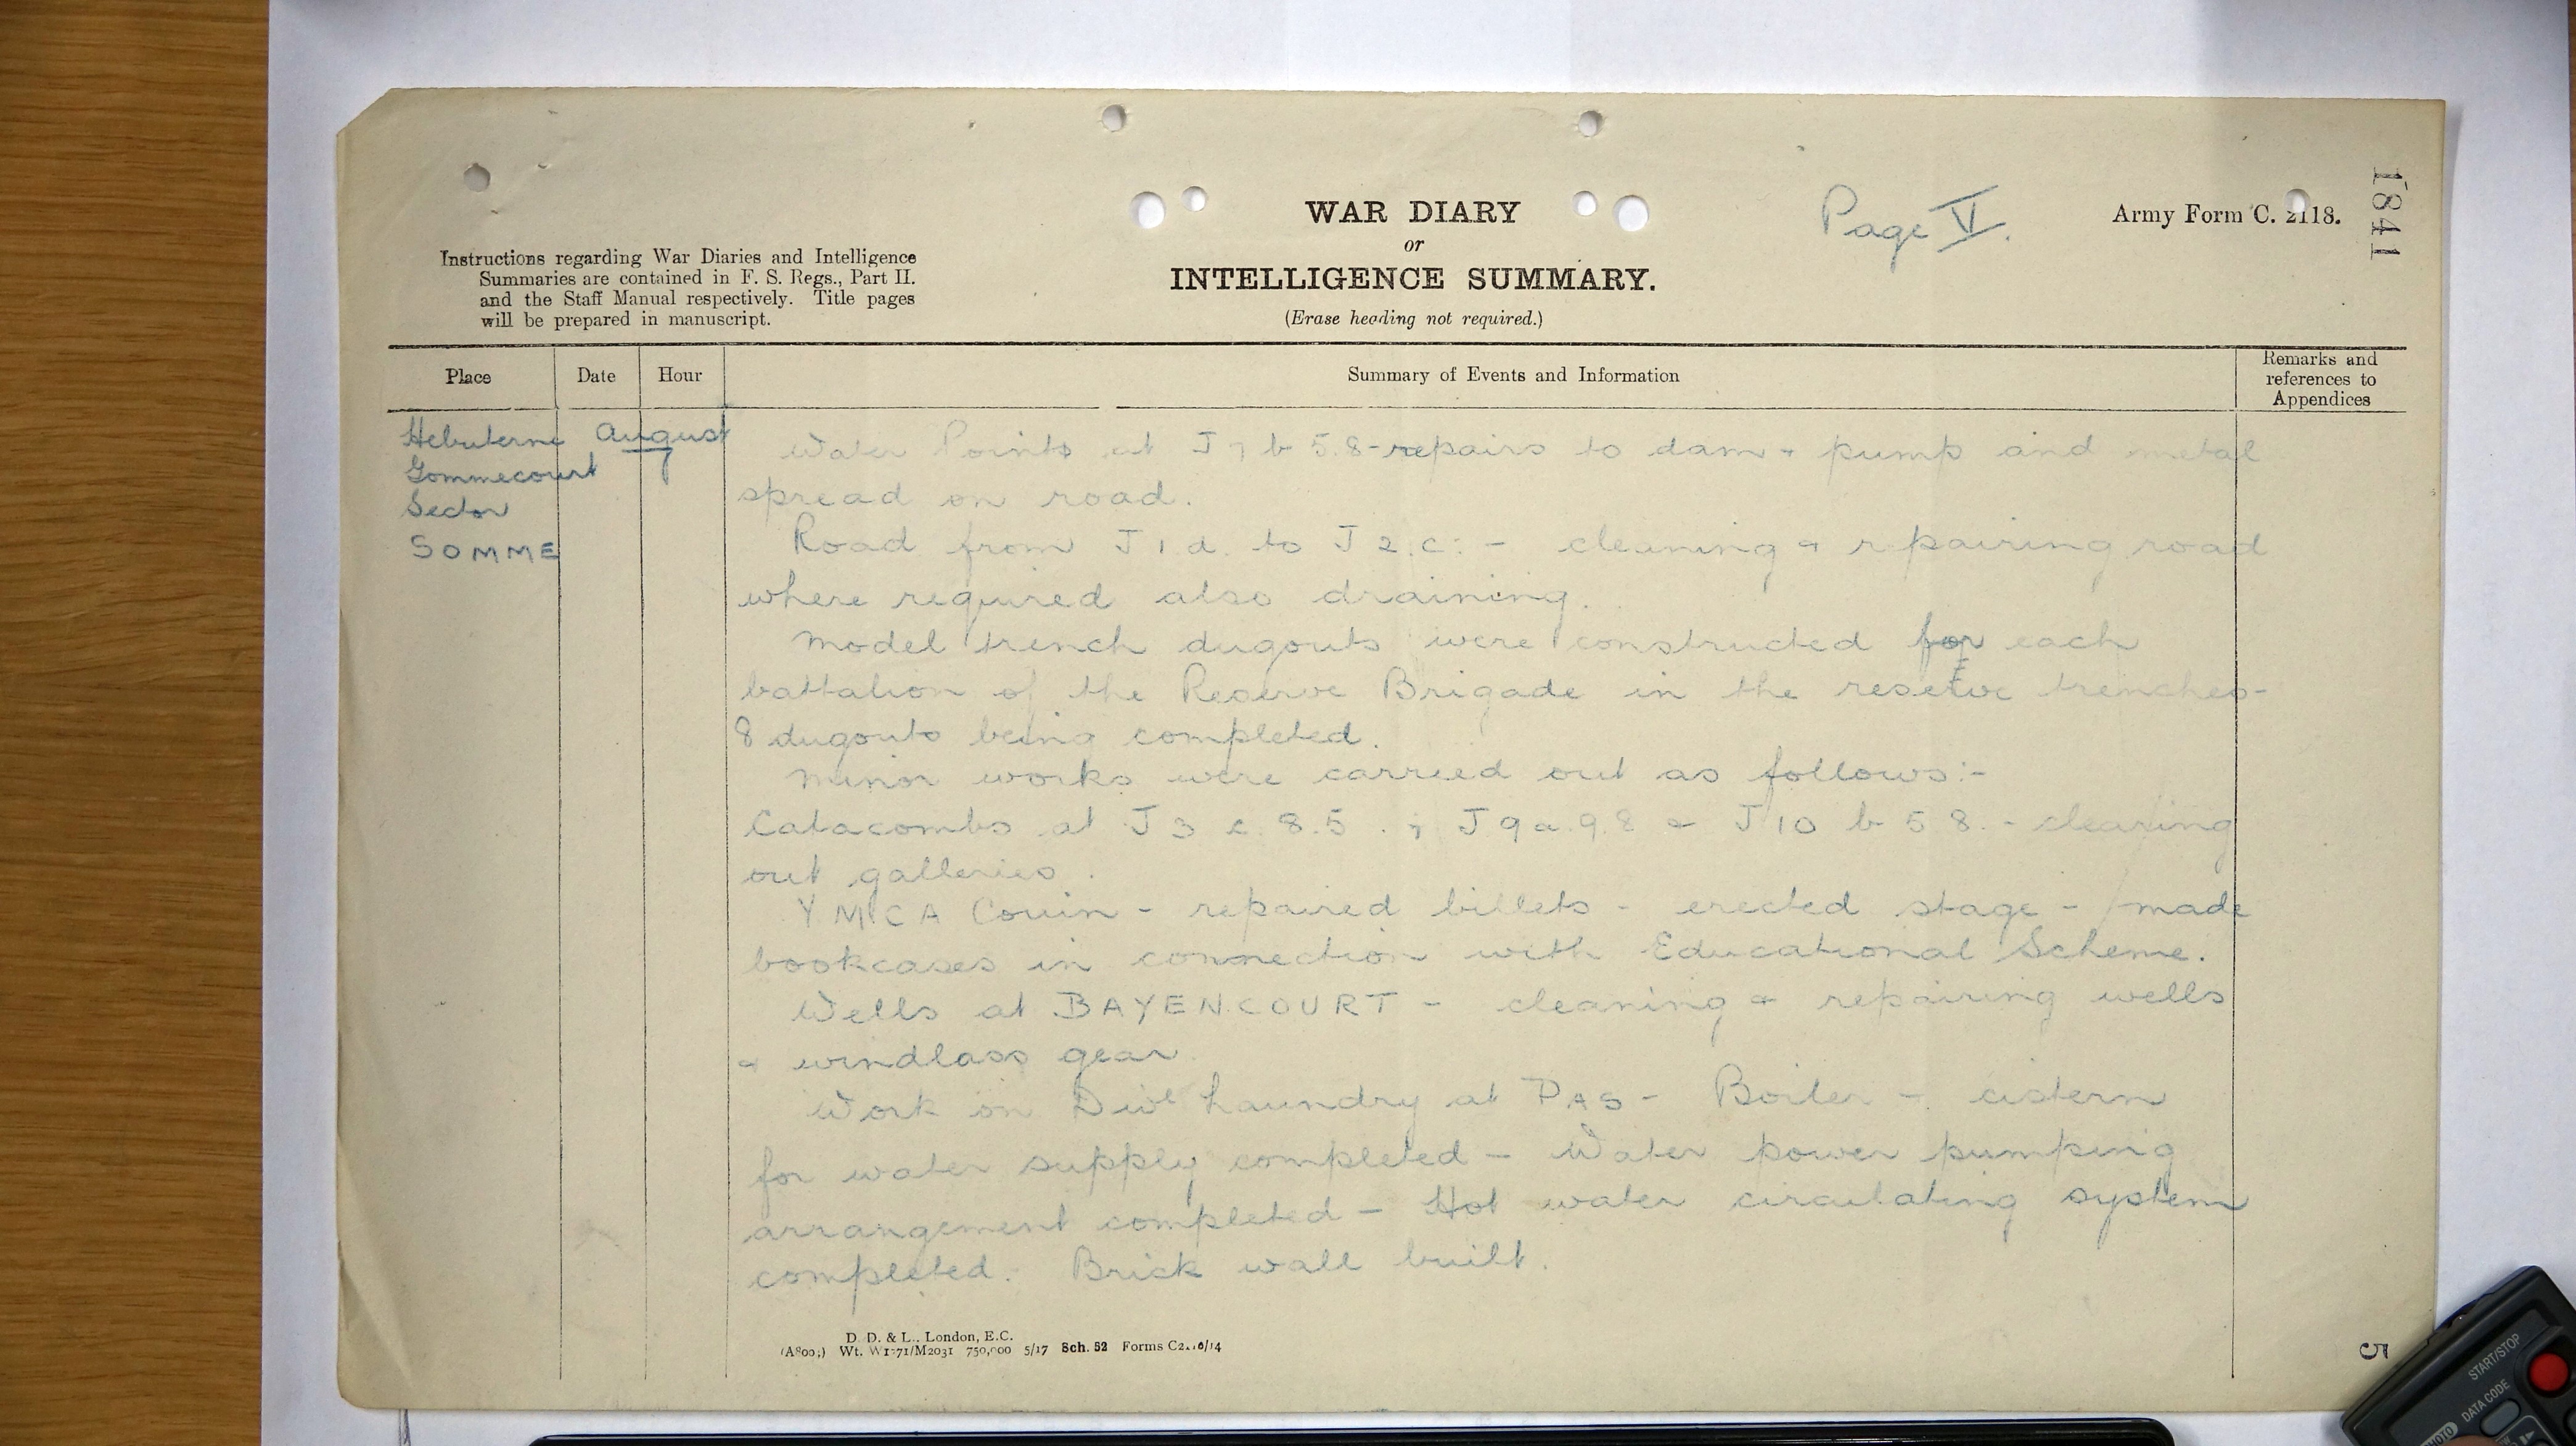 WAR DIARY
or
INTELLIGENCE SUMMARY.
(Erase heading not required.)
Page V.
Army Form C. 2118.
1841
Instructions regarding War Diaries and Intelligence
Summaries are contained in F. S. Regs., Part II.
and the Staff Manual respectively. Title pages
will be prepared in manuscript.
Place Date Hour Summary of Events and Information Remarks and references to Appendices
Hebuterne August
Gommecourt 7
Sector
SOMME
Water Points at J 7 b 5.8 - repairs to dam & pump and metal
spread on road.
Road from J 1. d. to J 2. c: - cleaning & repairing road
where required also draining.
Model trench dugouts were constructed for each
battalion of the Reserve Brigade in the reserve trenches -
8 dugouts being completed.
Minor works were carried out as follows:-
Catacombs at J 3 c. 8.5. ; J 9 a. 9.8 & J 10 b 5 8. - clearing
out galleries.
YMCA Couin - repaired billets - erected stage - made
bookcases in connection with Educational Scheme.
Wells at BAYENCOURT - cleaning & repairing wells
& windlass gear.
Work on Divl Laundry at PAS - Boiler - cistern
for water supply completed - Water power pumping
arrangement completed - Hot water circulating system
completed. Brick wall built.
D. D. & L., London, E.C.
Wt. 750,000 5/17 Sch. 52 Forms
5
START/STOP
DATA CODE
PHOTO